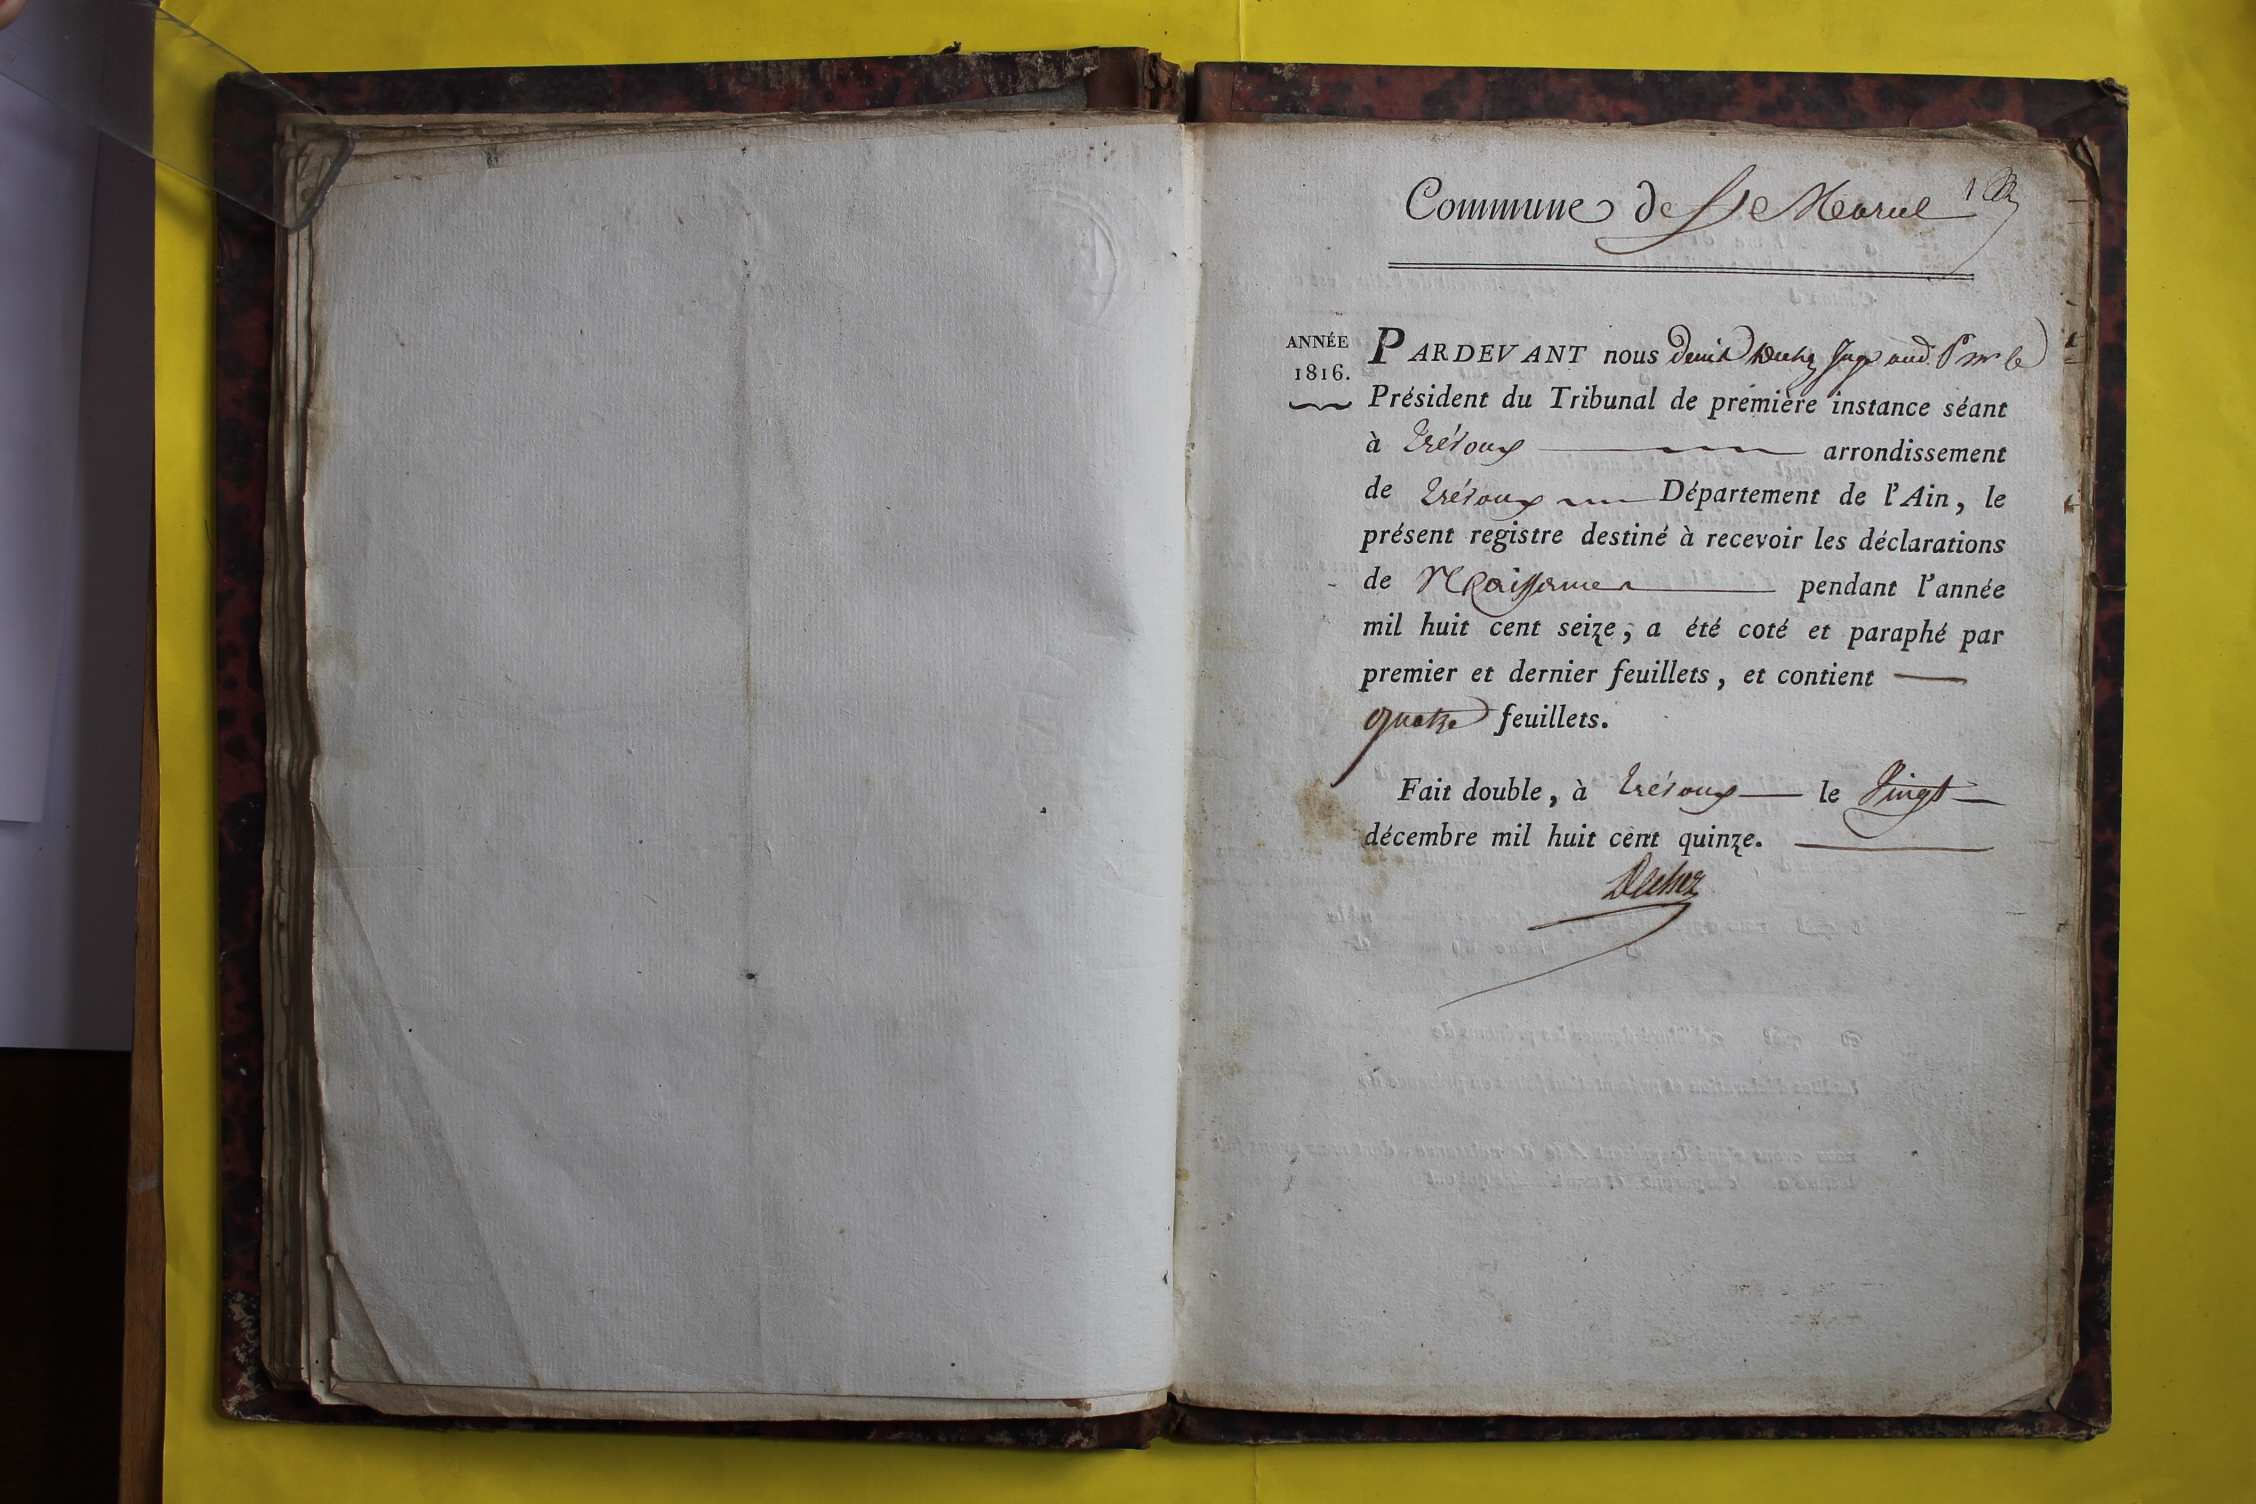 Commune de St Marcel 1
ANNÉE
1816.
PARDEVANT nous Denis Juge aud. Pour le
Président du Tribunal de première instance séant
à Trévoux arrondissement
de Trévoux Département de l'Ain, le
présent registre destiné à recevoir les déclarations
de Naissances pendant l'année
mil huit cent seize, a été coté et paraphé par
premier et dernier feuillets, et contient
quatre feuillets.
Fait double, à Trévoux le Vingt
décembre mil huit cent quinze.